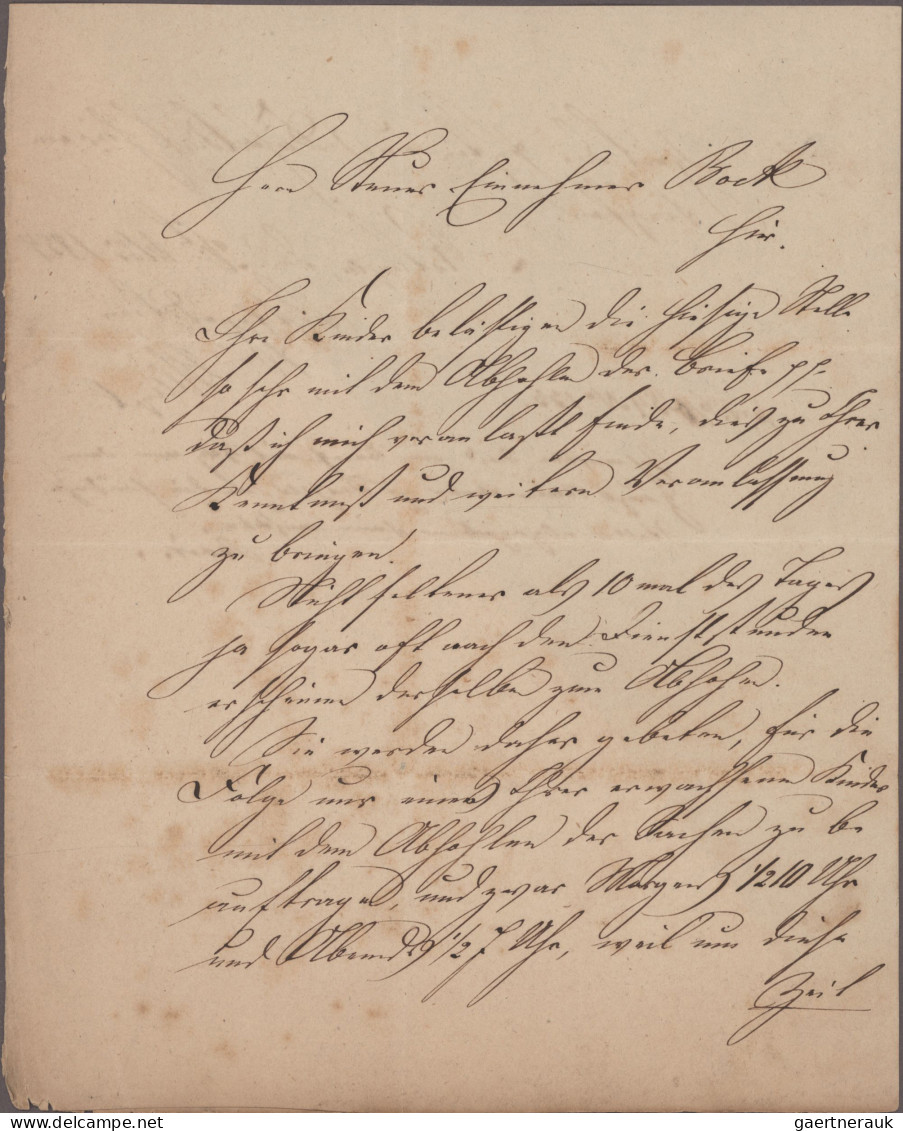 Herrn Steuer Einnehmer Bock
hier.
Ihre Kinder belästigen die hiesige Stelle
so sehr mit dem Abhohlen der Briefe pp
daß ich mich veranlaßt finde, dies zu Ihrer
Kenntniß und weitern Veranlassung
zu bringen.
Nicht seltener als 10 mal des Tages
ja sogar oft nach den Dienststunden
erscheinen dieselbe zum Abhohlen.
Sie werden daher gebeten, für die
Folge nur eines Ihrer erwachsenen Kinder
mit dem Abhohlen der Sachen zu be
auftragen, und zwar Morgens 1/2 10 Uhr
und Abends 1/2 7 Uhr, weil um diese
Zeit
gaertnerauk